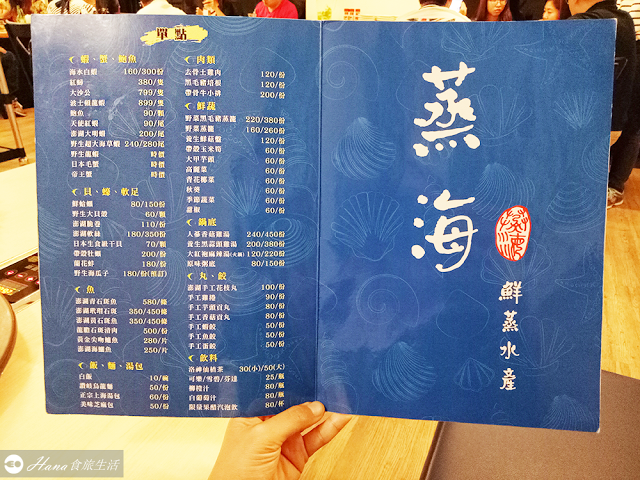 單點
蝦、蟹、鮑魚
海水白蝦 160/300份
紅蟳 380/隻
大沙公 799/隻
波士頓龍蝦 899/隻
鮑魚 90/顆
天使紅蝦 90/尾
澎湖大明蝦 200/尾
野生超大海草蝦 240/280尾
野生龍蝦 時價
日本毛蟹 時價
帝王蟹 時價
貝、蜂、軟足
鮮蛤蠣 80/150份
野生大貝殼 60/顆
澎湖脆卷 110/份
澎湖軟絲 180/350份
日本生食級干貝 70/顆
帶殼牡蠣 200/份
蘭花蚌 180/份
野生海瓜子 180/份(預訂)
魚
澎湖青石斑魚 580/條
澎湖玳瑁石斑 350/450條
澎湖黃石斑魚 350/450條
龍膽石斑清肉 500/份
黃金尖吻鱸魚 280/片
澎湖海鱺魚 250/片
飯、麵、湯包
白飯 10/碗
讚岐烏龍麵 50/份
正宗上海湯包 60/份
美味芝麻包 50/份
肉類
去骨土雞肉 120/份
黑毛豬培根 120/份
帶骨牛小排 200/份
鮮蔬
野菜黑毛豬蒸籠 220/380份
野菜蒸籠 160/260份
養生鮮菇盤 120/份
帶殼玉米筍 60/份
大甲芋頭 60/份
高麗菜 60/份
青花椰菜 60/份
秋葵 60/份
季節蔬菜 60/份
甜椒 60/份
鍋底
人蔘香菇雞湯 240/450份
養生黑蒜頭雞湯 200/380份
大紅袍麻辣湯(火鍋) 120/220份
原味粥底 80/150份
丸、餃
澎湖手工花枝丸 100/份
手工雞捲 90/份
手工芋頭貢丸 80/份
手工香菇貢丸 80/份
手工蝦餃 50/份
手工魚餃 50/份
手工蛋餃 50/份
飲料
洛神仙楂茶 30(小)/50(大)
可樂/雪碧/芬達 25/瓶
柳橙汁 80/瓶
白葡萄汁 80/瓶
限量果醋汽泡飲 80/杯
蒸海
鮮蒸水産
Hana 食旅生活